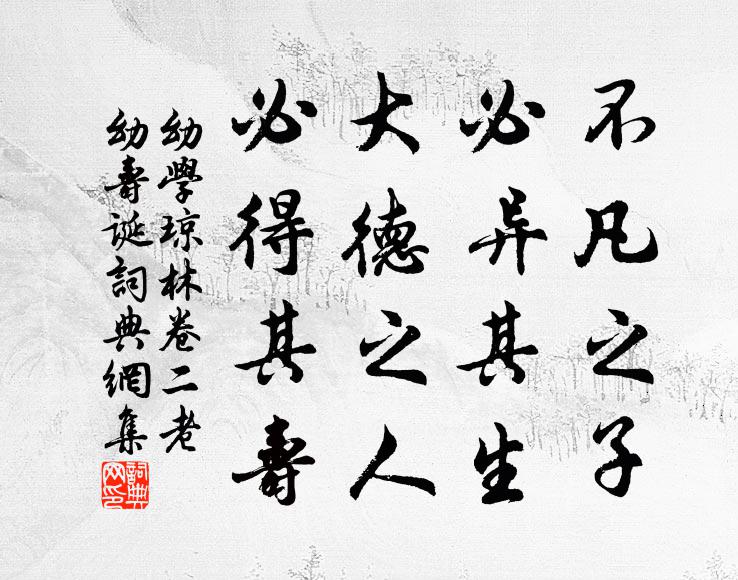 不凡之子
必异其生
大德之人
必得其壽
幼學琼林卷二老
幼壽誕詞典網集
詞典
网印